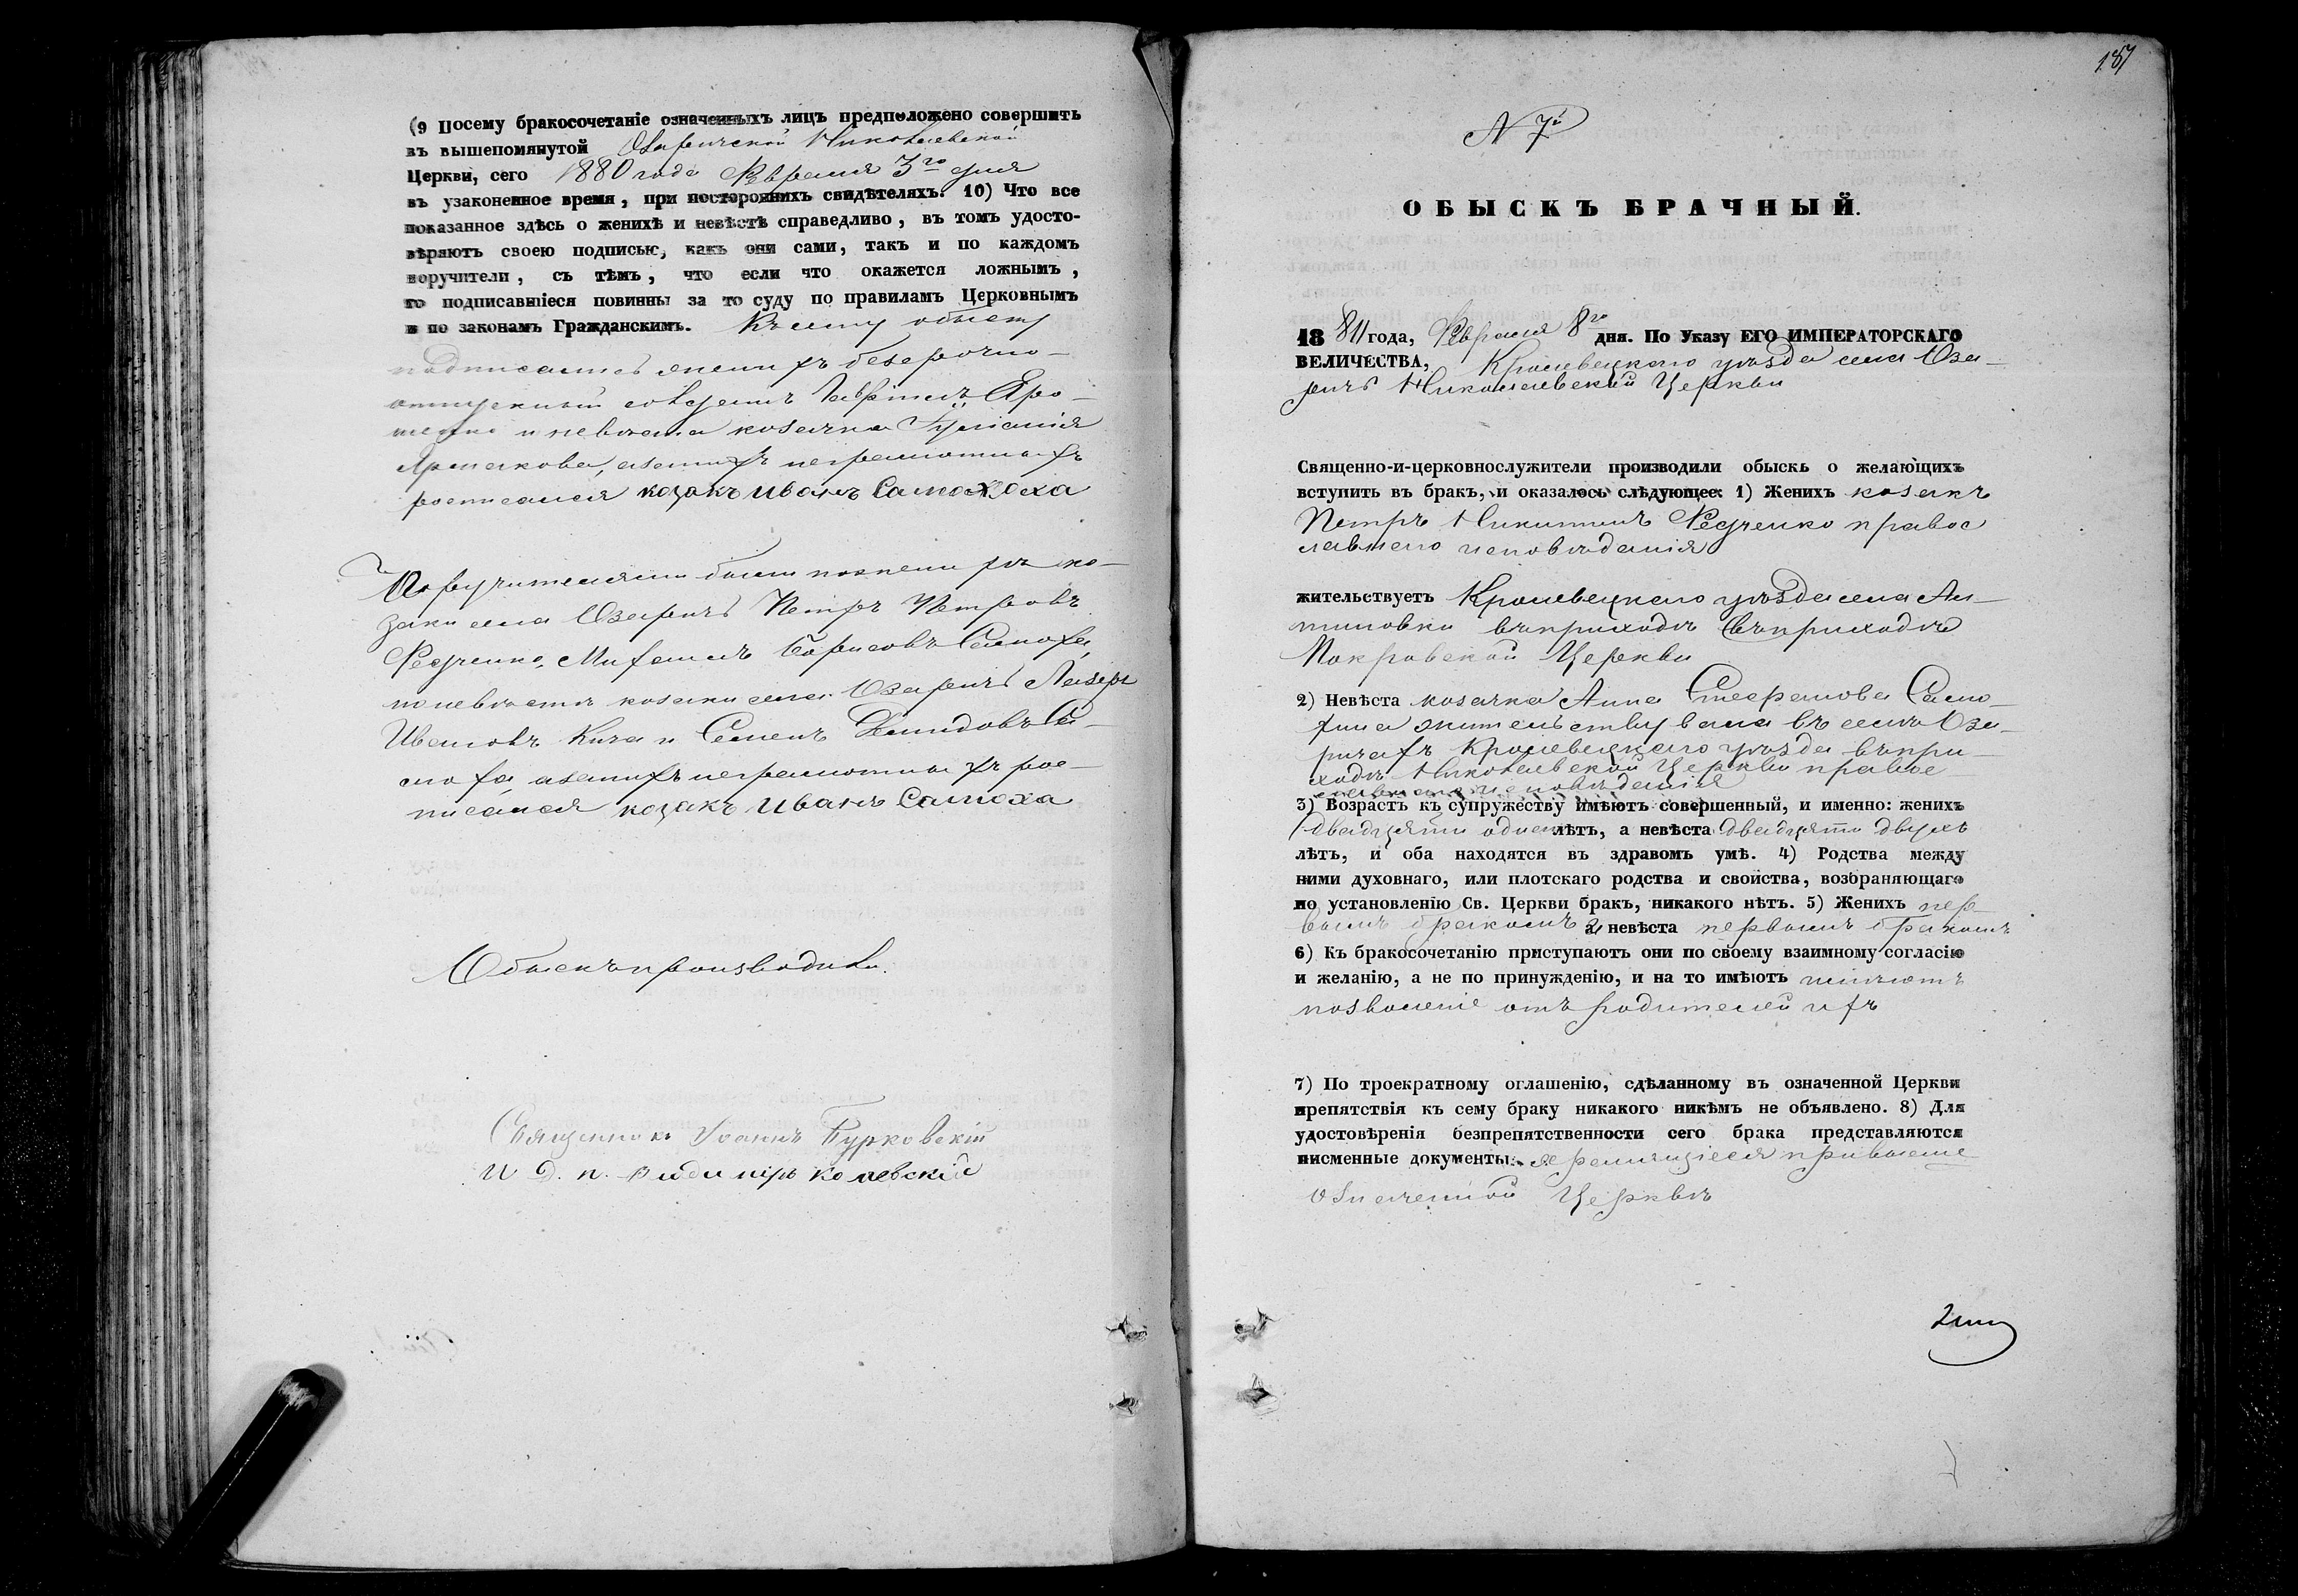 (9 Посему бракосочетаніе означенныхъ лицъ предположено совершить
въ вышепомянутой Озаричской Николаевской
Церкви, сего 1880 года Февраля 3го дня
въ узаконенное время, при постороннихъ свидѣтеляхъ. 10) Что все
показанное здѣсь о женихѣ и невѣстѣ справедливо, въ томъ удосто-
вѣряютъ своею подписью, какъ они сами, такъ и по каждомъ
поручители, съ тѣмъ, что если что окажется ложнымъ,
то подписавшіеся повинны за то суду по правиламъ Церковнымъ
и по законамъ Гражданскимъ. Къ сему обыску
подписались женихъ безсрочно-
отпускный Гавріилъ
и невѣста козачка
а за нихъ неграмотныхъ
росписался козакъ Иванъ Самоха
Поручителями были по женихѣ ко-
заки села Озаричъ Петръ Петровъ
Федченко, Михаилъ Борисовъ Самоха,
по невѣстѣ козаки села Озаричъ Лазарь
Ивановъ Кича и Семенъ Демидовъ Са-
моха а за нихъ неграмотныхъ рос-
писался козакъ Иванъ Самоха
Обыскъ производили.
Священникъ Іоаннъ Бурковскій
И. д. п.
187
N 7й
ОБЫСКЪ БРАЧНЫЙ.
18 80 года, Февраля 8го дня. По Указу ЕГО ИМПЕРАТОРСКАГО
ВЕЛИЧЕСТВА, Кролевецкаго уѣзда села Оза-
ричъ Николаевской Церкви
Священно-и-церковнослужители производили обыскъ о желающихъ
вступить въ бракъ, и оказалось слѣдующее: 1) Женихъ козакъ
Петръ Никитинъ Федченко правос
лавнаго исповѣданія
жительствуетъ Кролевецкаго уѣзда села Ал-
тыновки въ приходѣ въ приходѣ
Покровской Церкви
2) Невѣста козачка Анна Стефанова Само-
хина жительствувала въ селѣ Оза-
ричахъ Кролевецкаго уѣзда въ при-
ходѣ Николаевской Церкви правос-
лавнаго исповѣданія
3) Возрастъ къ супружеству имѣютъ совершенный, и именно: женихъ
двадцяти одного лѣтъ, а невѣста двадцяти двухъ
лѣтъ, и оба находятся въ здравомъ умѣ. 4) Родства между
ними духовнаго, или плотскаго родства и свойства, возбраняющаго
по установленію Св. Церкви бракъ, никакого нѣтъ. 5) Женихъ пер-
вымъ бракомъ а невѣста первымъ бракомъ
6) Къ бракосочетанію приступаютъ они по своему взаимному согласію
и желанію, а не по принужденію, и на то имѣютъ имѣютъ
позволеніе отъ родителей ихъ
7) По троекратному оглашенію, сдѣланному въ означенной Церкви
препятствія къ сему браку никакого никѣмъ не объявлено. 8) Для
удостовѣренія безпрепятственности сего брака представляются
писменные документы: хранящіеся при выше
означенной Церквѣ